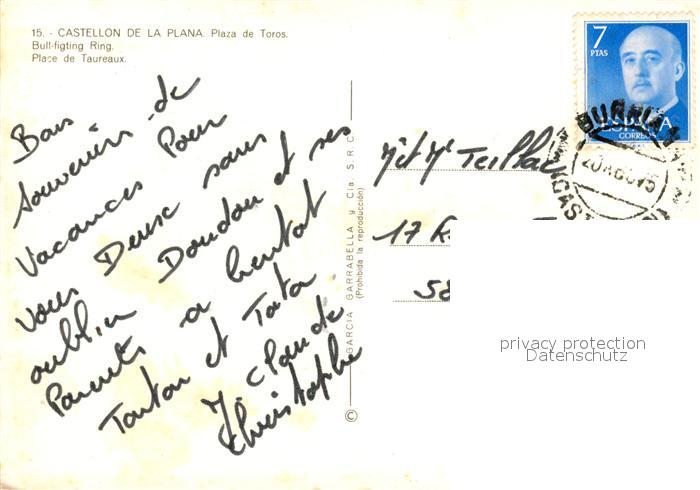 15. - CASTELLON DE LA PLANA. Plaza de Toros.
Bull-figting Ring.
Place de Taureaux.
Bons
Souvenirs de
Vacances Pour
vous Deux sans
oublier Doudou et ses
Parents a bientot
Tonton et Tata
M. Claude
Christophe
© GARCIA GARRABELLA y Cia. S.R.C.
(Prohibida la reproducción)
7
PTAS
ESPAÑA
CORREOS
BURRIANA
20 AGO 75
CAS
17 R
58
privacy protection
Datenschutz